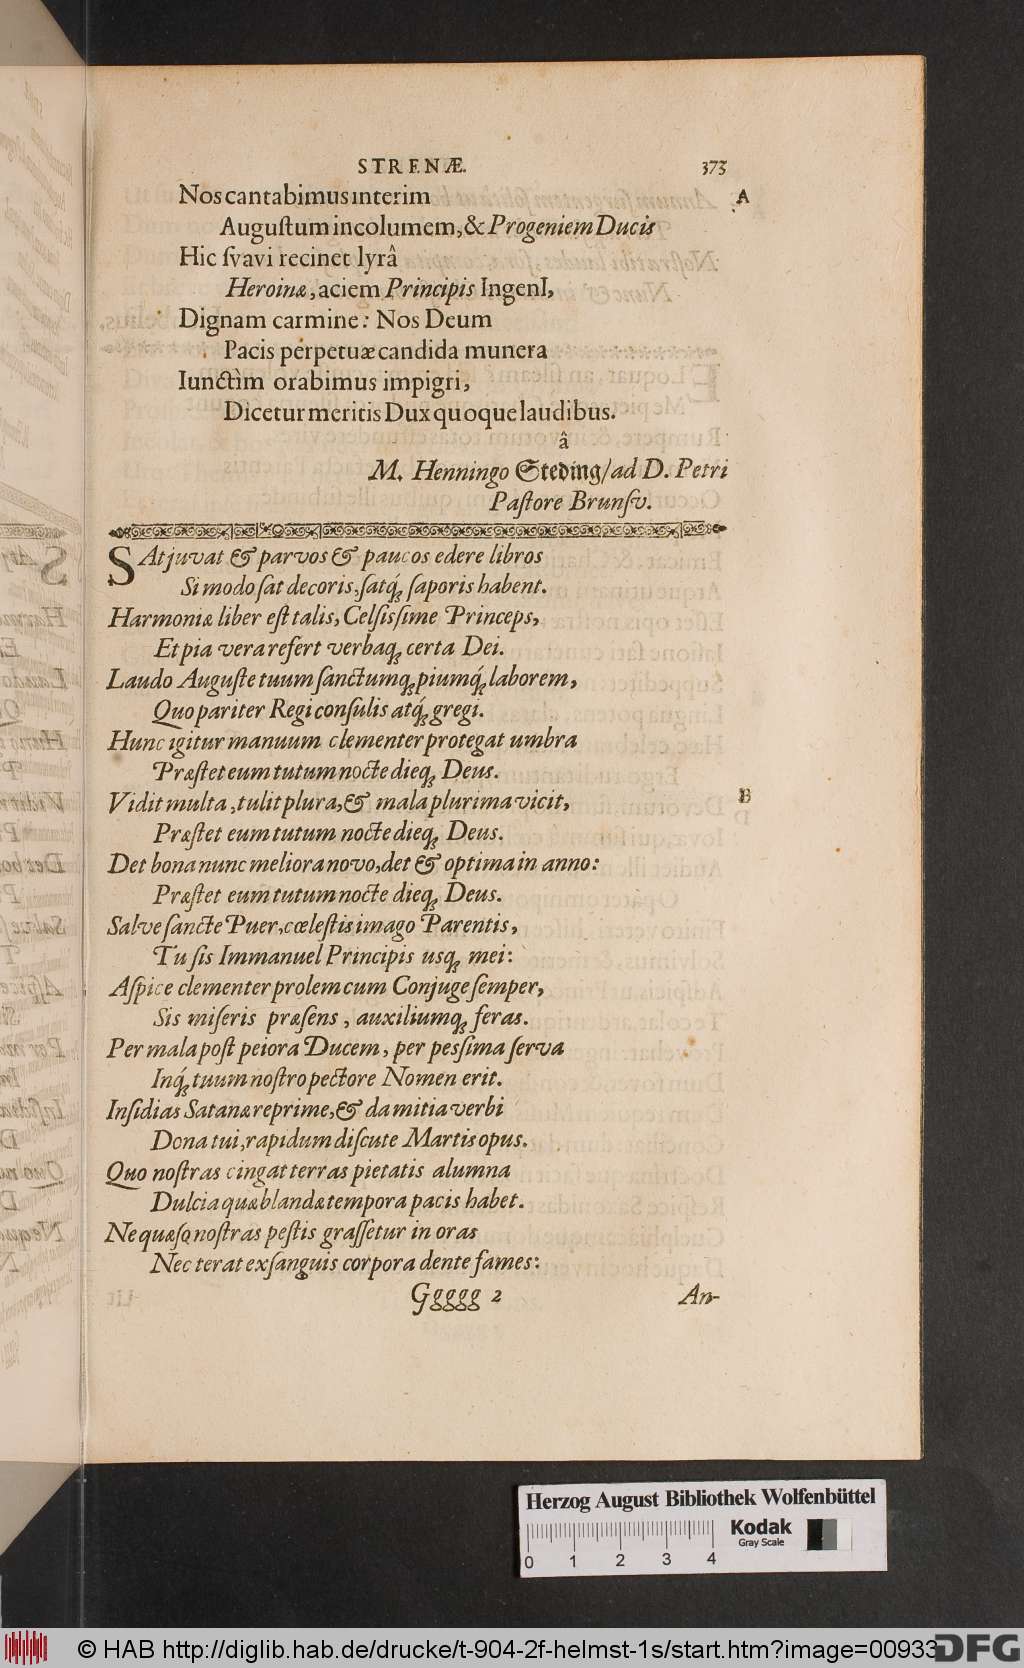 STRENÆ. 373
Nos cantabimus interim A
Auguſtum incolumem, & Progeniem Ducis
Hic ſvavi recinet lyrâ
Heroinæ, aciem Principis IngenI,
Dignam carmine: Nos Deum
Pacis perpetuæ candida munera
Iunctìm orabimus impigri,
Dicetur meritis Dux quoque laudibus.
â
M. Henningo Steding/ ad D. Petri
Paſtore Brunſv.
SAt juvat & parvos & paucos edere libros
Si modo ſat decoris, ſatq́; ſaporis habent.
Harmoniæ liber eſt talis, Celſiſsime Princeps,
Et pia vera refert verbaq; certa Dei.
Laudo Auguſte tuum ſanctumq; piumq́; laborem,
Quo pariter Regi conſulis atq́; gregi.
Hunc igitur manuum clementer protegat umbra
Præſtet eum tutum nocte dieq; Deus.
Vidit multa, tulit plura, & mala plurima vicit, B
Præſtet eum tutum nocte dieq; Deus.
Det bona nunc meliora novo, det & optima in anno:
Præſtet eum tutum nocte dieq; Deus.
Salve ſancte Puer, cœleſtis imago Parentis,
Tu ſis Immanuel Principis usq; mei:
Aſpice clementer prolem cum Conjuge ſemper,
Sis miſeris præſens, auxiliumq; feras.
Per mala poſt peiora Ducem, per peſsima ſerva
Inq́; tuum noſtro pectore Nomen erit.
Inſidias Satanæ reprime, & da mitia verbi
Dona tui, rapidum diſcute Martis opus.
Quo noſtras cingat terras pietatis alumna
Dulcia quæ blandæ tempora pacis habet.
Ne quæſo noſtras peſtis graſſetur in oras
Nec terat exſanguis corpora dente fames:
Ggggg 2 An-
Herzog August Bibliothek Wolfenbüttel
0 1 2 3 4
Kodak
Gray Scale
© HAB http://diglib.hab.de/drucke/t-904-2f-helmst-1s/start.htm?image=00933
DFG